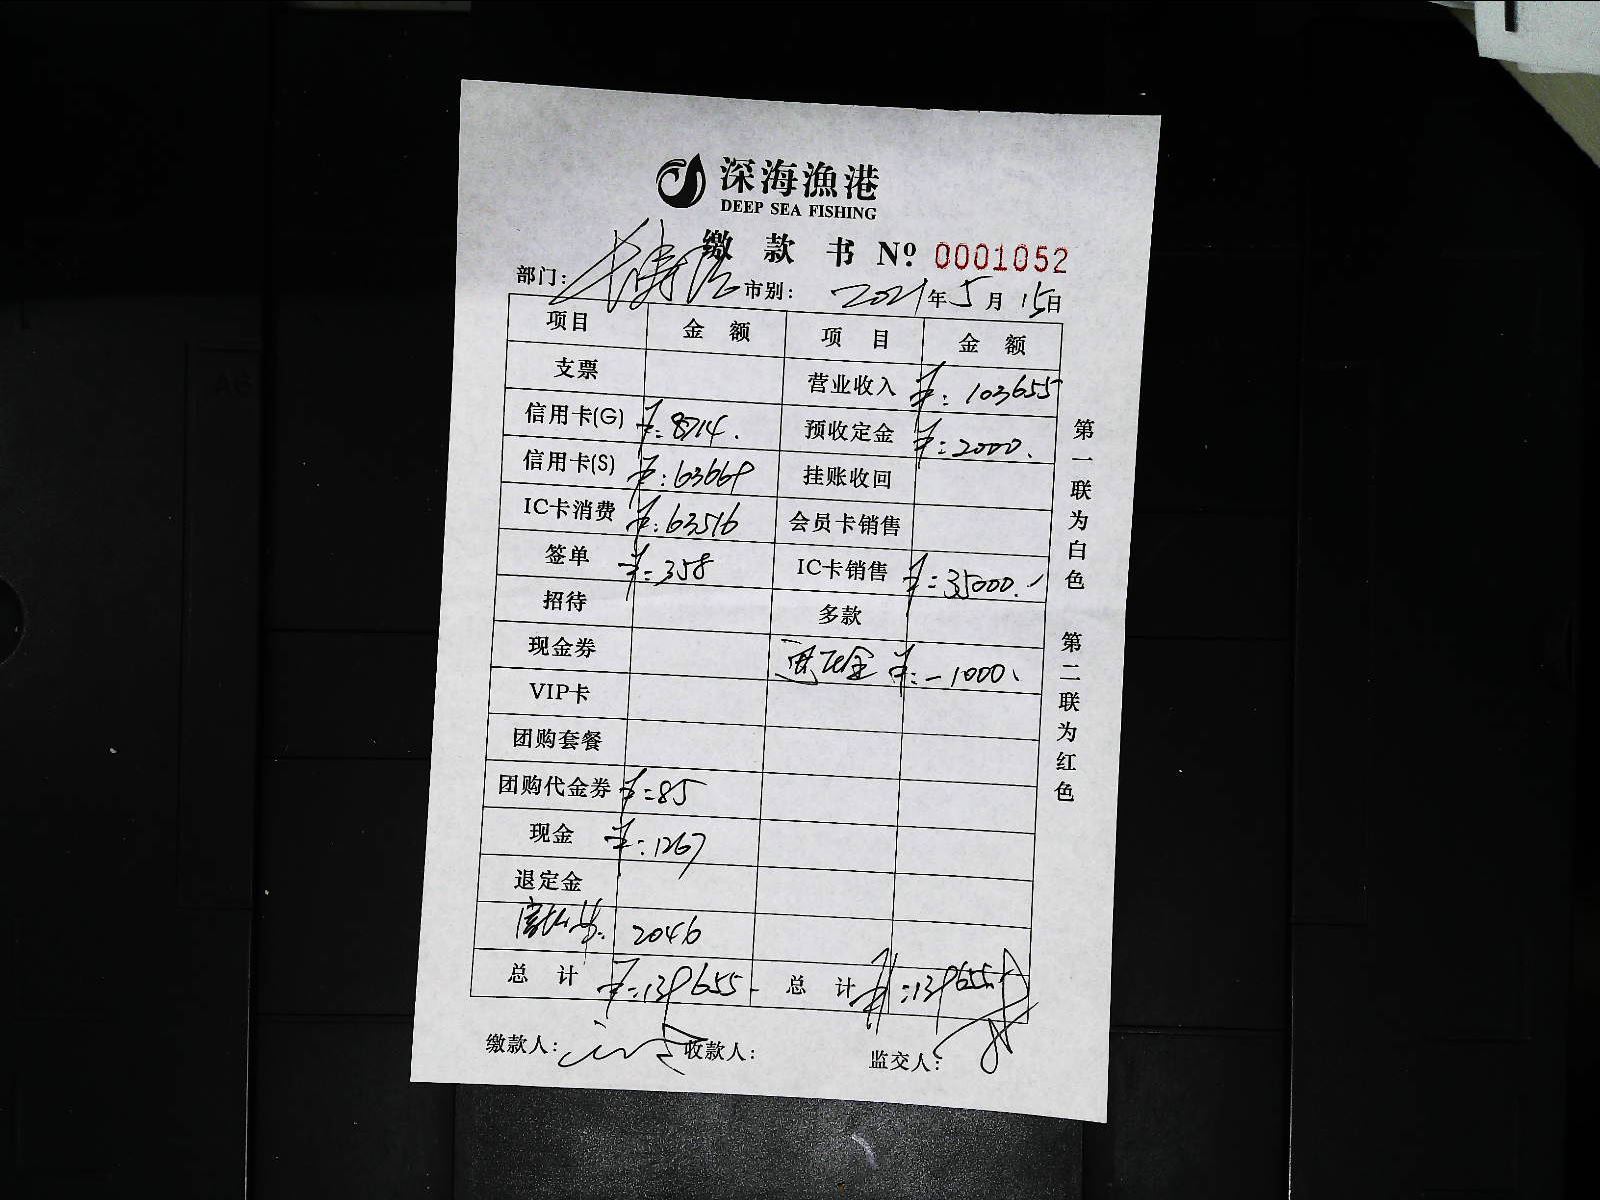 深海漁港
DEEP SEA FISHING
缴款书 Nº 0001052
部门: 市别: 2021年5月15日
项目 金额 项目 金额
支票 营业收入 ¥:103655
信用卡(G) ¥:8714. 预收定金 ¥:2000.
信用卡(S) ¥:63669 挂账收回
IC卡消费 ¥:63516 会员卡销售
签单 ¥:358 IC卡销售 ¥:35000.
招待 多款
现金券 ¥:-1000.
VIP卡
团购套餐
团购代金券 ¥:85
现金 ¥:1267
退定金
2046
总计 ¥:139655- 总计 ¥:139655
缴款人: 收款人: 监交人:
第一联为白色 第二联为红色